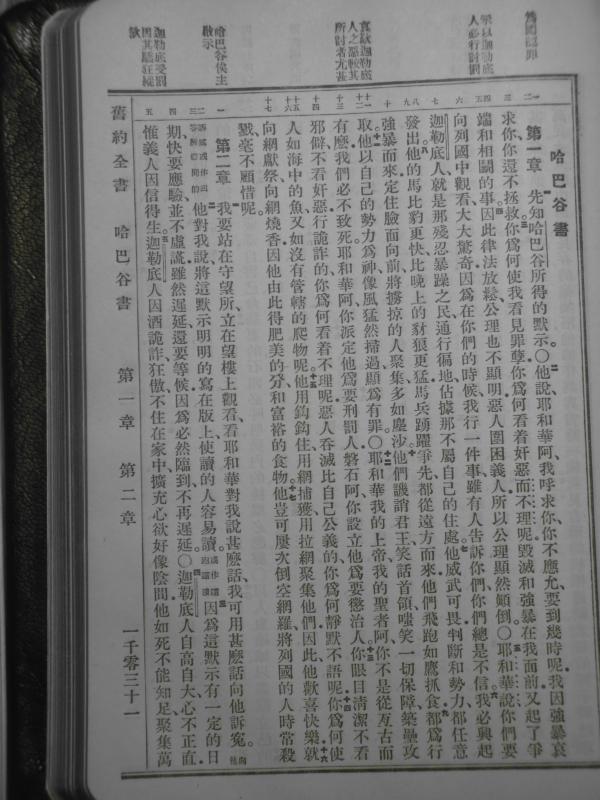 哈巴谷書
第一章 先知哈巴谷所得的默示〇他說耶和華阿我呼求你你不應允要到幾時呢我因強暴哀
求你你還不拯救你爲何使我看見罪孽你爲何看着奸惡而不理呢毀滅和強暴在我面前又起了爭
端和相鬬的事因此律法放鬆公理也不顯明惡人圍困義人所以公理顯然顛倒〇耶和華說你們要
向列國中觀看大大驚奇因爲在你們的時候我行一件事雖有人告訴你們你們總是不信我必興起
迦勒底人就是那殘忍暴躁之民通行徧地佔據那不屬自己的住處他威武可畏判斷和勢力都任意
發出他的馬比豹更快比晚上的豺狼更猛馬兵踴躍爭先都從遠方而來他們飛跑如鷹抓食都爲行
強暴而來定住臉面向前將擄掠的人聚集多如塵沙他們譏誚君王笑話首領嗤笑一切保障築壘攻
取他以自己的勢力爲神像風猛然掃過顯爲有罪〇耶和華我的上帝我的聖者阿你不是從亙古而
有麽我們必不致死耶和華阿你派定他爲要刑罰人磐石阿你設立他爲要懲治人你眼目清潔不看
邪僻不看奸惡行詭詐的你爲何看着不理呢惡人吞滅比自己公義的你爲何靜默不語呢你爲何使
人如海中的魚又如沒有管轄的爬物呢他用鈎鈎住用網捕獲用拉網聚集他們因此他歡喜快樂就
向網獻祭向網燒香因他由此得肥美的分和富裕的食物他豈可屢次倒空網羅將列國的人時常殺
戮毫不顧惜呢
第二章 我要站在守望所立在望樓上觀看看耶和華對我說甚麽話我可用甚麽話向他訴寃
他對我說將這默示明明的寫在版上使讀的人容易讀因爲這默示有一定的日
期快要應驗並不虛謊雖然遲延還要等候因爲必然臨到不再遲延〇迦勒底人自高自大心不正直
惟義人因信得生迦勒底人因酒詭詐狂傲不住在家中擴充心欲好像陰間他如死不能知足聚集萬
舊約全書 哈巴谷書 第一章 第二章 一千零三十一